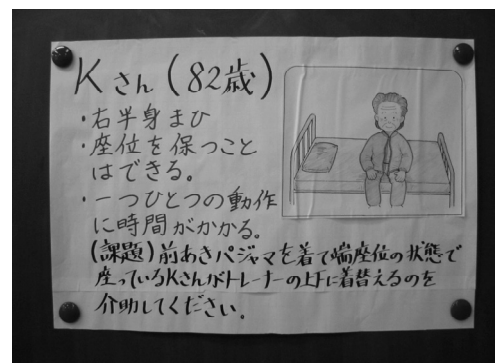 Kさん(82歳)
・右半身まひ
・座位を保つこと
はできる。
・一つひとつの動作
に時間がかかる。
(課題)前あきパジャマを着て端座位の状態で
座っているKさんがトレーナーの上下に着替えるのを
介助してください。